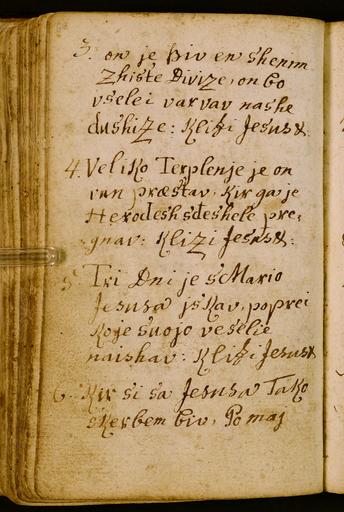 3. on je Biv en shenin
Zhiste Divize, on bo
vselei varvav nashe
dushize: Klizi Jesus &.
4. Veliko Terplenje je on
vun præstav, Kir ga je
Herodesh sdeshele pre-
gnav: Klizi Jesus &:
5 Tri Dni je s Mario
Jesusa jskav, poprei
Koje suojo veselie
naishav: Klizi Jesus &
6. Kir si sa Jesusa Tako
skerbem biv, Pomaj